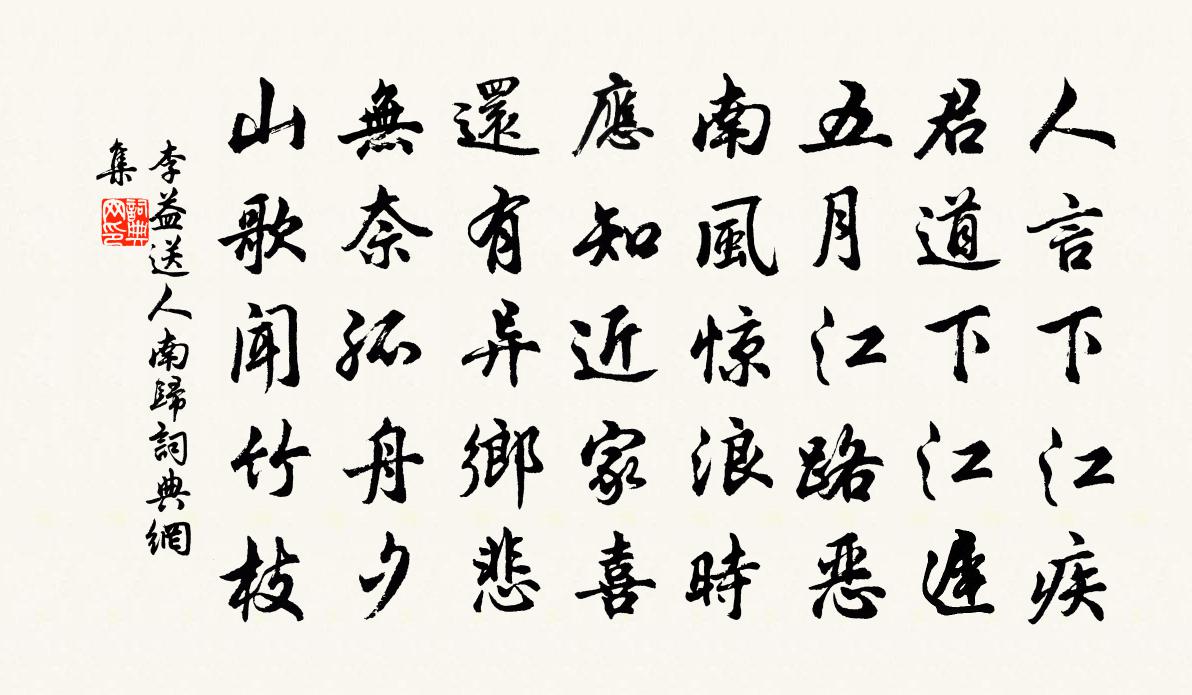 人言下江疾
君道下江遲
五月江路恶
南風惊浪時
應知近家喜
還有异鄉悲
無奈孤舟夕
山歌聞竹枝
李益送人南歸詞典網
集
詞典
网印